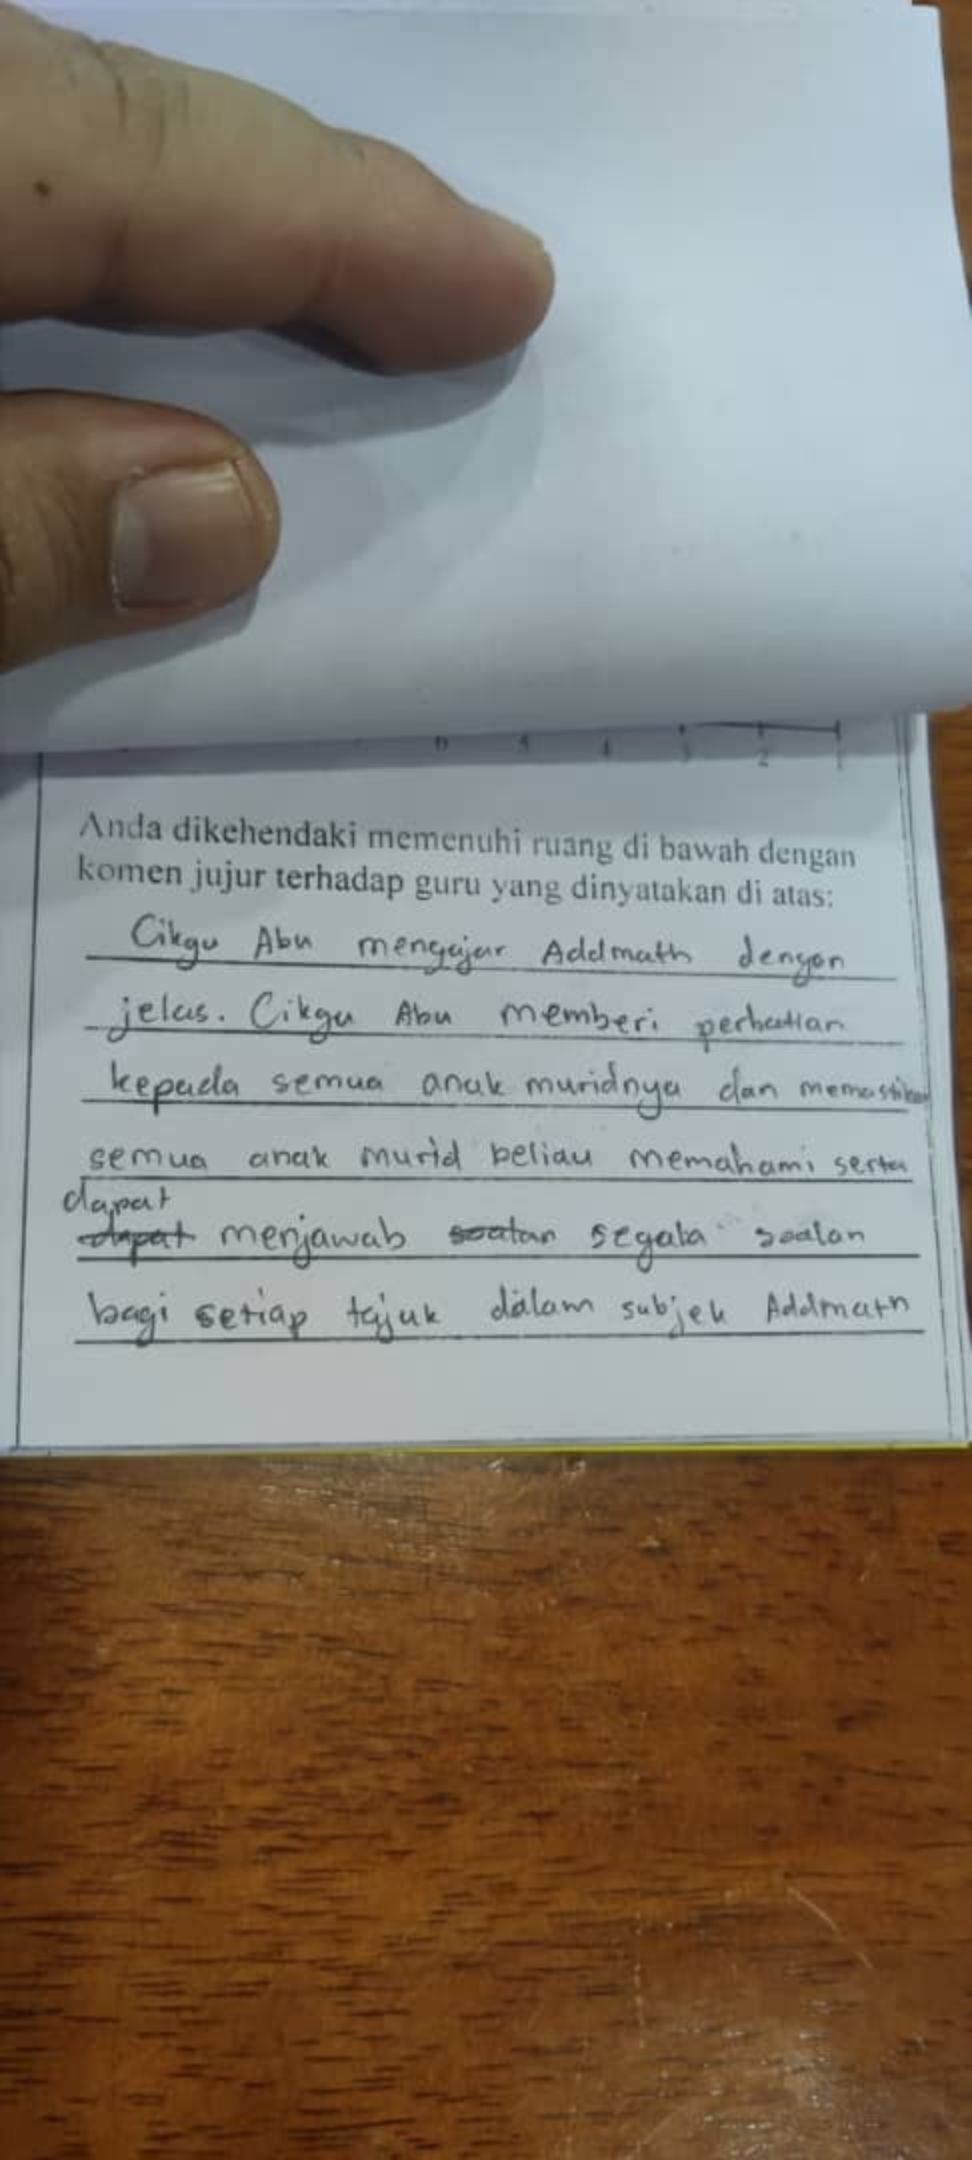 6 5 4 3 2 1
Anda dikehendaki memenuhi ruang di bawah dengan
komen jujur terhadap guru yang dinyatakan di atas:
Cikgu Abu mengajar Addmath dengan
jelas. Cikgu Abu memberi perhatian
kepada semua anak muridnya dan memastikan
semua anak murid beliau memahami serta
dapat
dapat menjawab soalan segala soalan
bagi setiap tajuk dalam subjek Addmath